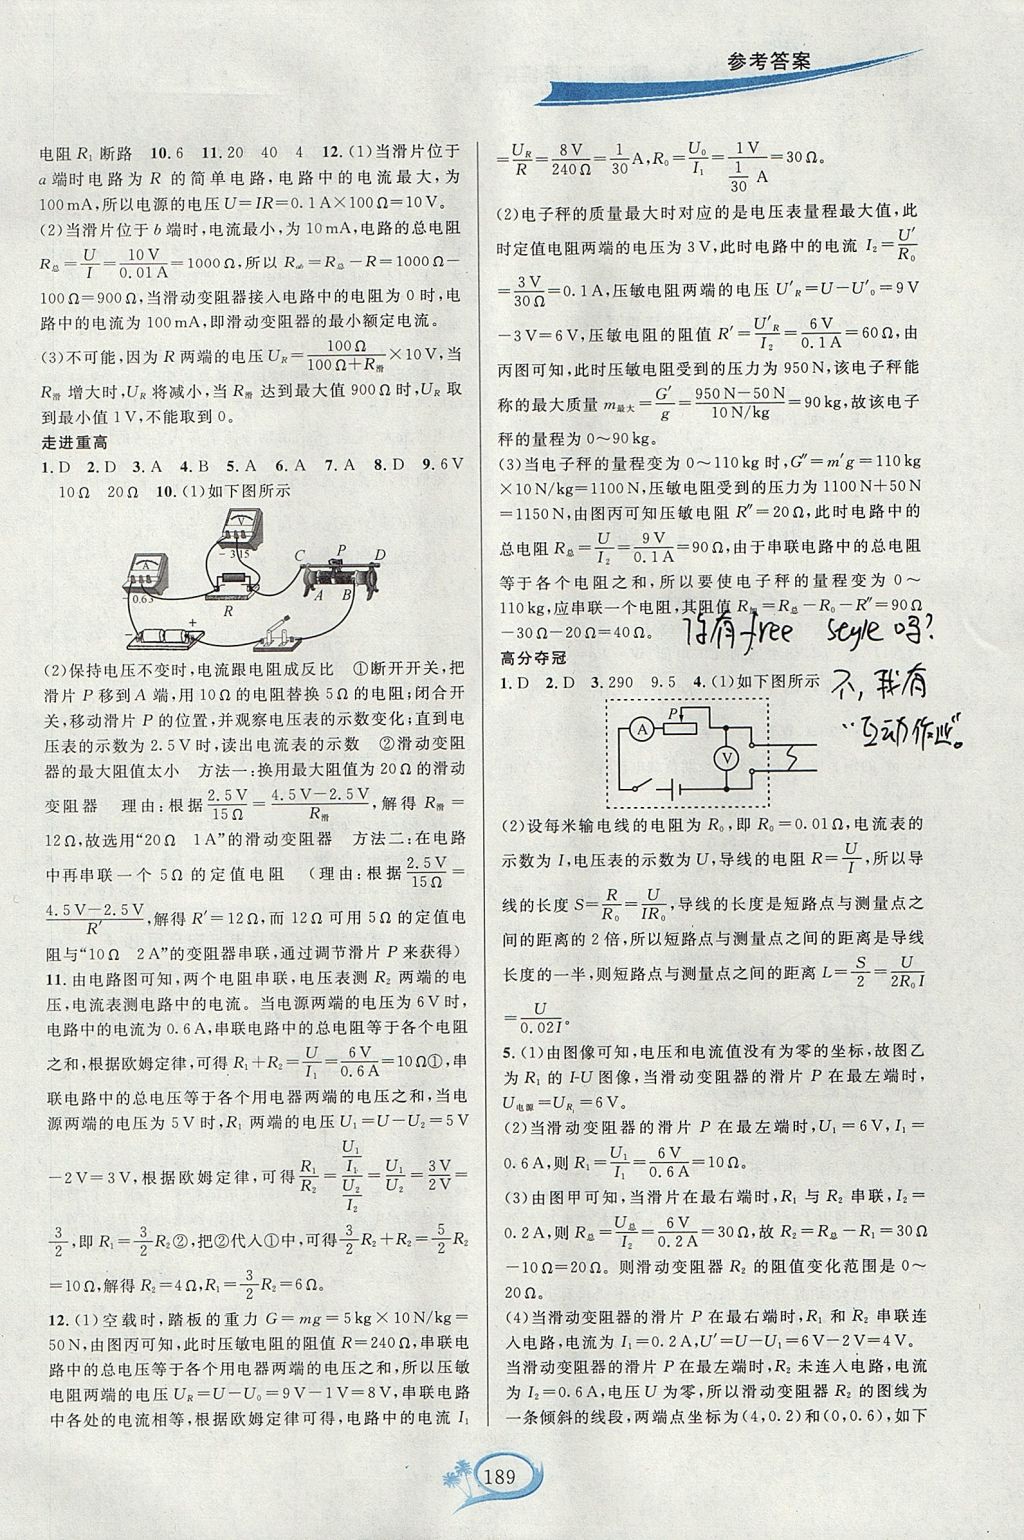 参考答案
电阻 R₁ 断路　10. 6　11. 20　40　4　12. (1)当滑片位于
a 端时电路为 R 的简单电路，电路中的电流最大，为
100 mA，所以电源的电压 U＝IR＝0.1 A×100 Ω＝10 V。
(2)当滑片位于 b 端时，电流最小，为 10 mA，电路的总电阻
R总＝U/I＝10 V/0.01 A＝1000 Ω，所以 Rab＝R总－R＝1000 Ω－
100 Ω＝900 Ω，当滑动变阻器接入电路中的电阻为 0 时，电
路中的电流为 100 mA，即滑动变阻器的最小额定电流。
(3)不可能，因为 R 两端的电压 UR＝100 Ω/(100 Ω＋R滑)×10 V，当
R滑 增大时，UR 将减小，当 R滑 达到最大值 900 Ω 时，UR 取
到最小值 1 V，不能取到 0。
走进重高
1. D　2. D　3. A　4. B　5. A　6. A　7. A　8. D　9. 6 V
10 Ω　20 Ω　10. (1)如下图所示
V
－ 3 15
A
－0.6 3
R
C P D
A B
－ ＋
(2)保持电压不变时，电流跟电阻成反比　①断开开关，把
滑片 P 移到 A 端，用 10 Ω 的电阻替换 5 Ω 的电阻；闭合开
关，移动滑片 P 的位置，并观察电压表的示数变化；直到电
压表的示数为 2.5 V 时，读出电流表的示数　②滑动变阻
器的最大阻值太小　方法一：换用最大阻值为 20 Ω 的滑动
变阻器　理由：根据 2.5 V/15 Ω＝(4.5 V－2.5 V)/R滑，解得 R滑＝
12 Ω，故选用“20 Ω　1 A”的滑动变阻器　方法二：在电路
中再串联一个 5 Ω 的定值电阻　(理由：根据 2.5 V/15 Ω＝
(4.5 V－2.5 V)/R′，解得 R′＝12 Ω，而 12 Ω 可用 5 Ω 的定值电
阻与“10 Ω　2 A”的变阻器串联，通过调节滑片 P 来获得)
11. 由电路图可知，两个电阻串联，电压表测 R₂ 两端的电
压，电流表测电路中的电流。当电源两端的电压为 6 V 时，
电路中的电流为 0.6 A，串联电路中的总电阻等于各个电阻
之和，根据欧姆定律，可得 R₁＋R₂＝U/I₁＝6 V/0.6 A＝10 Ω①，串
联电路中的总电压等于各个用电器两端的电压之和，当电
源两端的电压为 5 V 时，R₁ 两端的电压 U₁＝U－U₂＝5 V
－2 V＝3 V，根据欧姆定律，可得 R₁/R₂＝(U₁/I₁)/(U₂/I₂)＝U₁/U₂＝3 V/2 V＝
3/2，即 R₁＝3/2R₂②，把②代人①中，可得 3/2R₂＋R₂＝5/2R₂
＝10 Ω，解得 R₂＝4 Ω，R₁＝3/2R₂＝6 Ω。
12. (1)空载时，踏板的重力 G＝mg＝5 kg×10 N/kg＝
50 N，由图丙可知，此时压敏电阻的阻值 R＝240 Ω，串联电
路中的总电压等于各个用电器两端的电压之和，所以压敏
电阻两端的电压 UR＝U－U₀＝9 V－1 V＝8 V，串联电路
中各处的电流相等，根据欧姆定律可得，电路中的电流 I₁
＝UR/R＝8 V/240 Ω＝1/30 A，R₀＝U₀/I₁＝1 V/(1/30 A)＝30 Ω。
(2)电子秤的质量最大时对应的是电压表量程最大值，此
时定值电阻两端的电压为 3 V，此时电路中的电流 I₂＝U′/R₀
＝3 V/30 Ω＝0.1 A，压敏电阻两端的电压 U′R＝U－U′₀＝9 V
－3 V＝6 V，压敏电阻的阻值 R′＝U′R/I₂＝6 V/0.1 A＝60 Ω，由
丙图可知，此时压敏电阻受到的压力为 950 N，该电子秤能
称的最大质量 m最大＝G′/g＝(950 N－50 N)/(10 N/kg)＝90 kg，故该电子
秤的量程为 0～90 kg。
(3)当电子秤的量程变为 0～110 kg 时，G″＝m′g＝110 kg
×10 N/kg＝1100 N，压敏电阻受到的压力为 1100 N＋50 N
＝1150 N，由图丙可知压敏电阻 R″＝20 Ω，此时电路中的
总电阻 R总＝U/I＝9 V/0.1 A＝90 Ω，由于串联电路中的总电阻
等于各个电阻之和，所以要使电子秤的量程变为 0～
110 kg，应串联一个电阻，其阻值 R加＝R总－R₀－R″＝90 Ω
－30 Ω－20 Ω＝40 Ω。
你有 free style 吗？
高分夺冠
1. D　2. D　3. 290　9.5　4. (1)如下图所示
不，我有
“互动作业”。
A P V
(2)设每米输电线的电阻为 R₀，即 R₀＝0.01 Ω，电流表的
示数为 I，电压表的示数为 U，导线的电阻 R＝U/I，所以导
线的长度 S＝R/R₀＝U/IR₀，导线的长度是短路点与测量点之
间的距离的 2 倍，所以短路点与测量点之间的距离是导线
长度的一半，则短路点与测量点之间的距离 L＝S/2＝U/2R₀I
＝U/0.02I。
5. (1)由图像可知，电压和电流值没有为零的坐标，故图乙
为 R₁ 的 I-U 图像，当滑动变阻器的滑片 P 在最左端时，
U电源＝UR₁＝6 V。
(2)当滑动变阻器的滑片 P 在最左端时，U₁＝6 V，I₁＝
0.6 A，则 R₁＝U₁/I₁＝6 V/0.6 A＝10 Ω。
(3)由图甲可知，当滑片在最右端时，R₁ 与 R₂ 串联，I₂＝
0.2 A，则 R总＝U总/I₂＝6 V/0.2 A＝30 Ω，故 R₂＝R总－R₁＝30 Ω
－10 Ω＝20 Ω。则滑动变阻器 R₂ 的阻值变化范围是 0～
20 Ω。
(4)当滑动变阻器的滑片 P 在最右端时，R₁ 和 R₂ 串联连
入电路，电流为 I₁＝0.2 A，U′＝U－U₁＝6 V－2 V＝4 V。
当滑动变阻器的滑片 P 在最左端时，R₂ 未连入电路，电流
为 I₂＝0.6 A，电压 U 为零，所以滑动变阻器 R₂ 的图线为
一条倾斜的线段，两端点坐标为(4，0.2)和(0，0.6)，如下
189